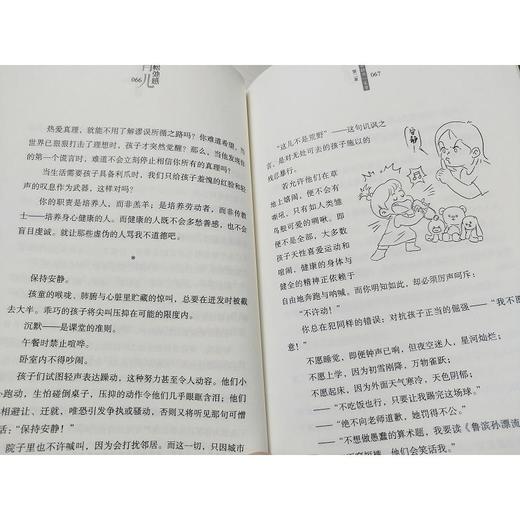 066
热爱真理，就能不用了解谬误所循之路吗？你难道希望，当
世界已狠狠打击了理想时，孩子才突然觉醒？那么，当他发现你
的第一个谎言时，难道不会立刻停止相信你所有的真理吗？
当生活需要孩子具备利爪时，我们只给孩子羞愧的红脸和轻
声的叹息作为武器，这样对吗？
你的职责是培养人，而非羔羊；是培养劳动者，而非传教
士——培养身心健康的人。而健康的人既不会多愁善感，也不会
盲目虔诚。就让那些虚伪的人骂我不道德吧。
*
保持安静。
孩童的喉咙、肺腑与心脏里贮藏的惊叫，总会在迸发时被截
去大半。乖巧的孩子将尖叫压抑在可能的限度内。
沉默——是课堂的准则。
午餐时禁止喧哗。
卧室内不得吵闹。
孩子们试图轻声表达躁动，这种努力甚至令人动容。他们小
跑动，生怕碰倒桌子，压抑的动作令他们几乎眼眶含泪。他们
相避让、迁就，唯恐引发争执或骚动，否则又将听见那句可憎
：“保持安静！”
院子里也不许喊叫，因为会打扰邻居。而这一切，只因城市
067
第一章
“这儿不是荒野”——这句讥讽之
言，是对无处可去的孩子施以的
残忍暴行。
若允许他们在草
地上嬉闹，便不会有
嘶吼，只有如人类雏
鸟般可爱的啁啾。即
便不是全部，大多数
孩子天性喜爱运动和
喧闹，健康的身体与
健全的精神正依赖于
自由地奔跑与呐喊。而你明知如此，却必须厉声呵斥：
“不许动！”
你总在犯同样的错误：对抗孩子正当的倔强——“我不
意！”
不愿睡觉，即便钟声已响，但夜空迷人，星河灿烂；
不愿上学，因为初雪刚降，万物雀跃；
不愿起床，因为外面天气寒冷，天色阴郁；
——“不吃饭也行，只要让我踢完这场球。”
——“绝不向老师道歉，她罚得不公。”
——“不想做愚蠢的算术题，我要读《鲁滨孙漂流
短裤，他们会笑话我。”
安静！